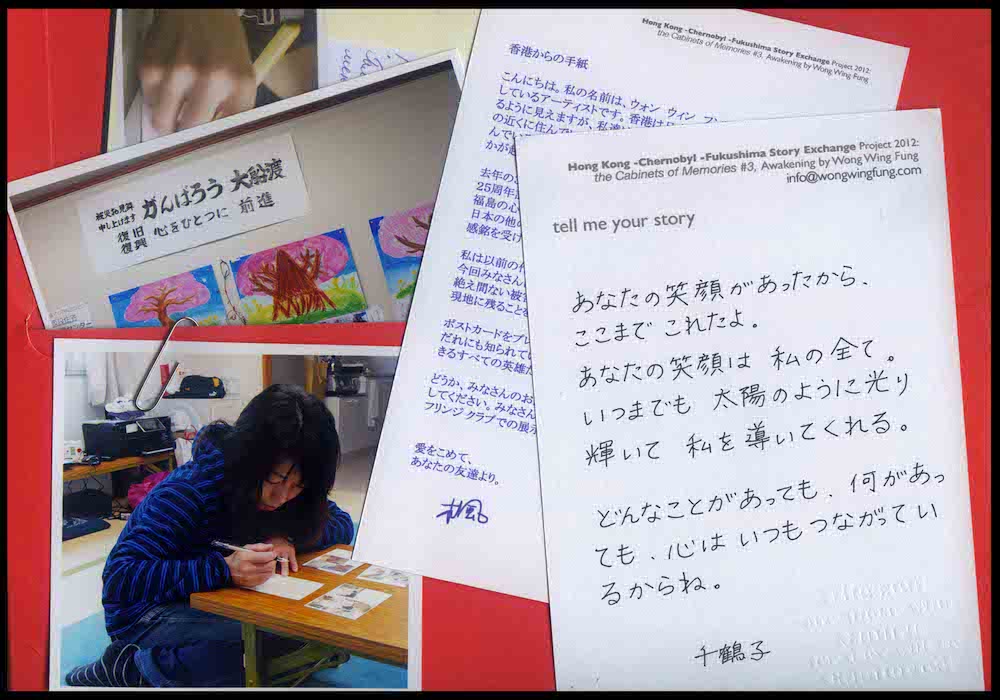 がんばろう 大船渡
申し上げます
復旧
復興
心をひとつに 前進
Hong Kong -Chernobyl -Fukushima Story Exchange Project 2012:
the Cabinets of Memories #3, Awakening by Wong Wing Fung
香港からの手紙
こんにちは。私の名前は、ウォン ウィン
しているアーティストです。香港は
るように見えますが、私達
の近くに住んで
んでい
かが
去年の
25周年
福島の心
日本の他の
感銘を受け
私は以前の作
今回みなさん
絶え間ない被
現地に残ること
ポストカードをプレ
だれにも知られてい
きるすべての英雄
どうか、みなさんのお
してください。みなさん
フリンジ クラブでの展示
愛をこめて、
あなたの友達より。
楓
Hong Kong -Chernobyl -Fukushima Story Exchange Project 2012:
the Cabinets of Memories #3, Awakening by Wong Wing Fung
info@wongwingfung.com
tell me your story
あなたの笑顔があったから、
ここまで これたよ。
あなたの笑顔は 私の全て。
いつまでも 太陽のように光り
輝いて 私を導いてくれる。
どんなことがあっても、何があっ
ても、心は いつもつながってい
るからね。
千鶴子